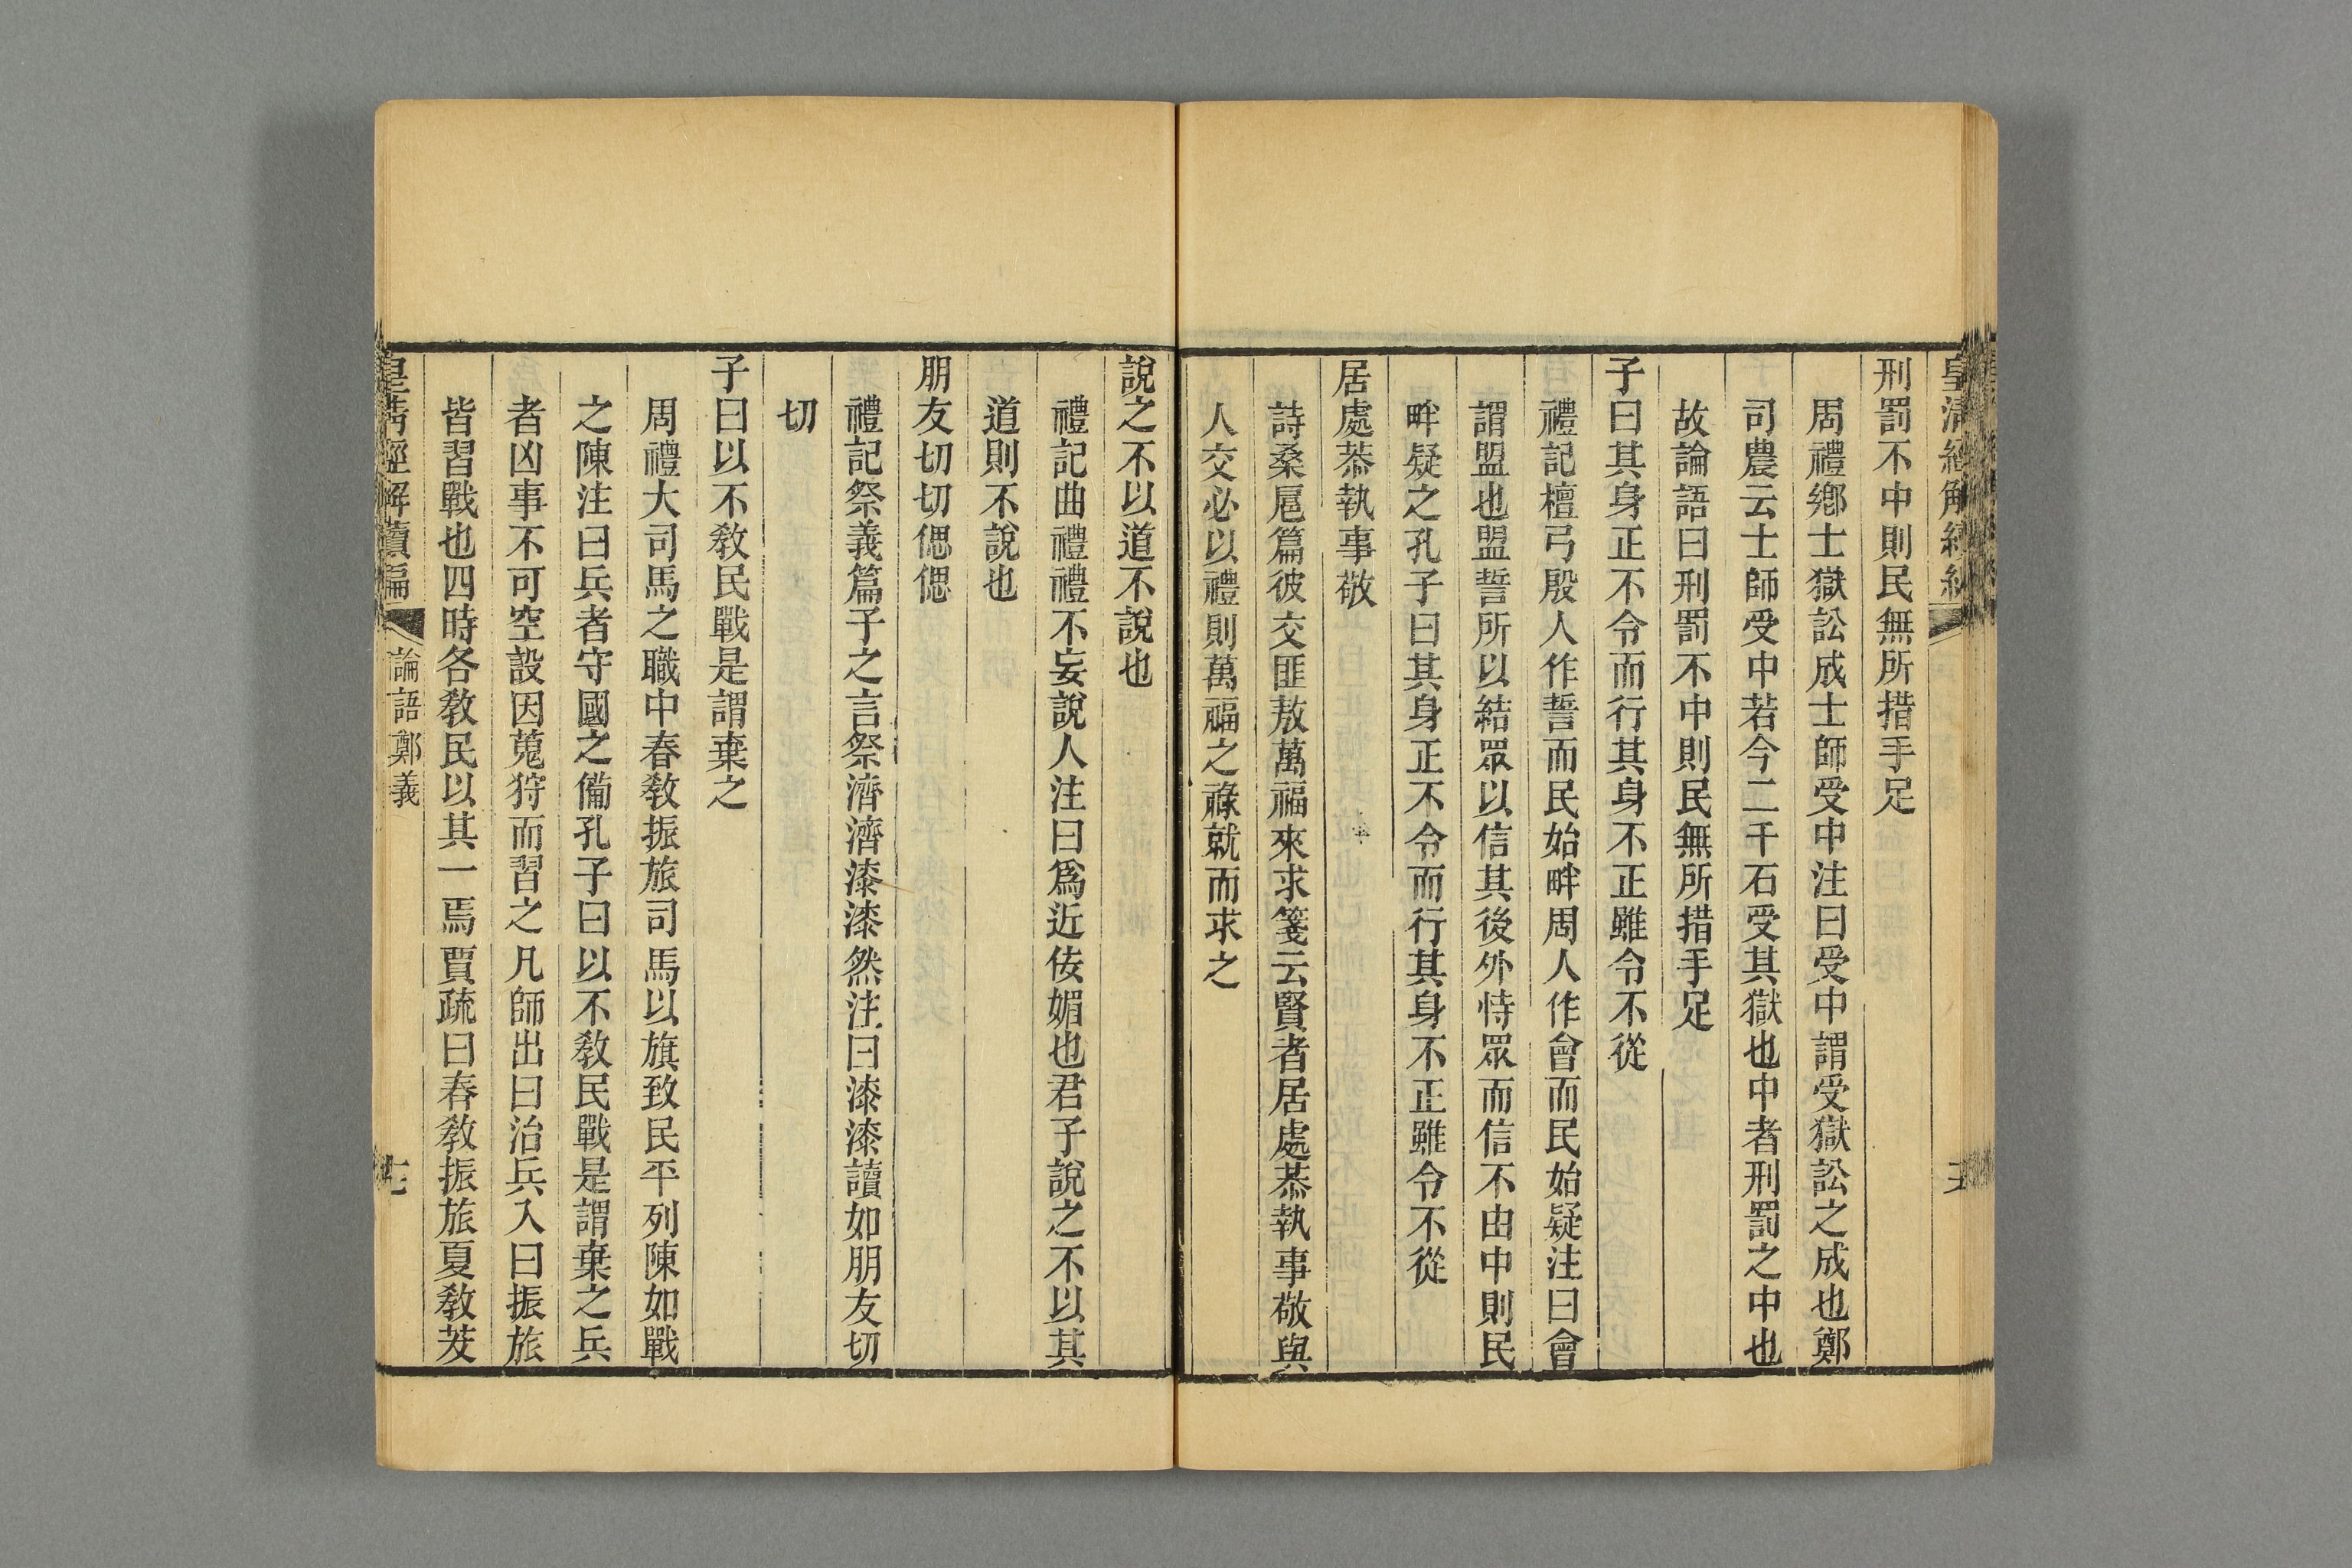 刑罰不中則民無所措手足
周禮鄉士獄訟成士師受中注曰受中謂受獄訟之成也鄭
司農云士師受中若今二千石受其獄也中者刑罰之中也
故論語曰刑罰不中則民無所措手足
子曰其身正不令而行其身不正雖令不從
禮記檀弓殷人作誓而民始畔周人作會而民始疑注曰會
謂盟也盟誓所以結眾以信其後外恃眾而信不由中則民
畔疑之孔子曰其身正不令而行其身不正雖令不從
居處恭執事敬
詩桑扈篇彼交匪敖萬福來求箋云賢者居處恭執事敬與
人交必以禮則萬福之祿就而求之
說之不以道不說也
禮記曲禮禮不妄說人注曰爲近佞媚也君子說之不以其
道則不說也
朋友切切偲偲
禮記祭義篇子之言祭濟濟漆漆然注曰漆漆讀如朋友切
切
子曰以不敎民戰是謂棄之
周禮大司馬之職中春敎振旅司馬以旗致民平列陳如戰
之陳注曰兵者守國之備孔子曰以不敎民戰是謂棄之兵
者凶事不可空設因蒐狩而習之凡師出曰治兵入曰振旅
皆習戰也四時各敎民以其一焉賈疏曰春敎振旅夏敎茇
皇清經解續編
論語鄭義
七